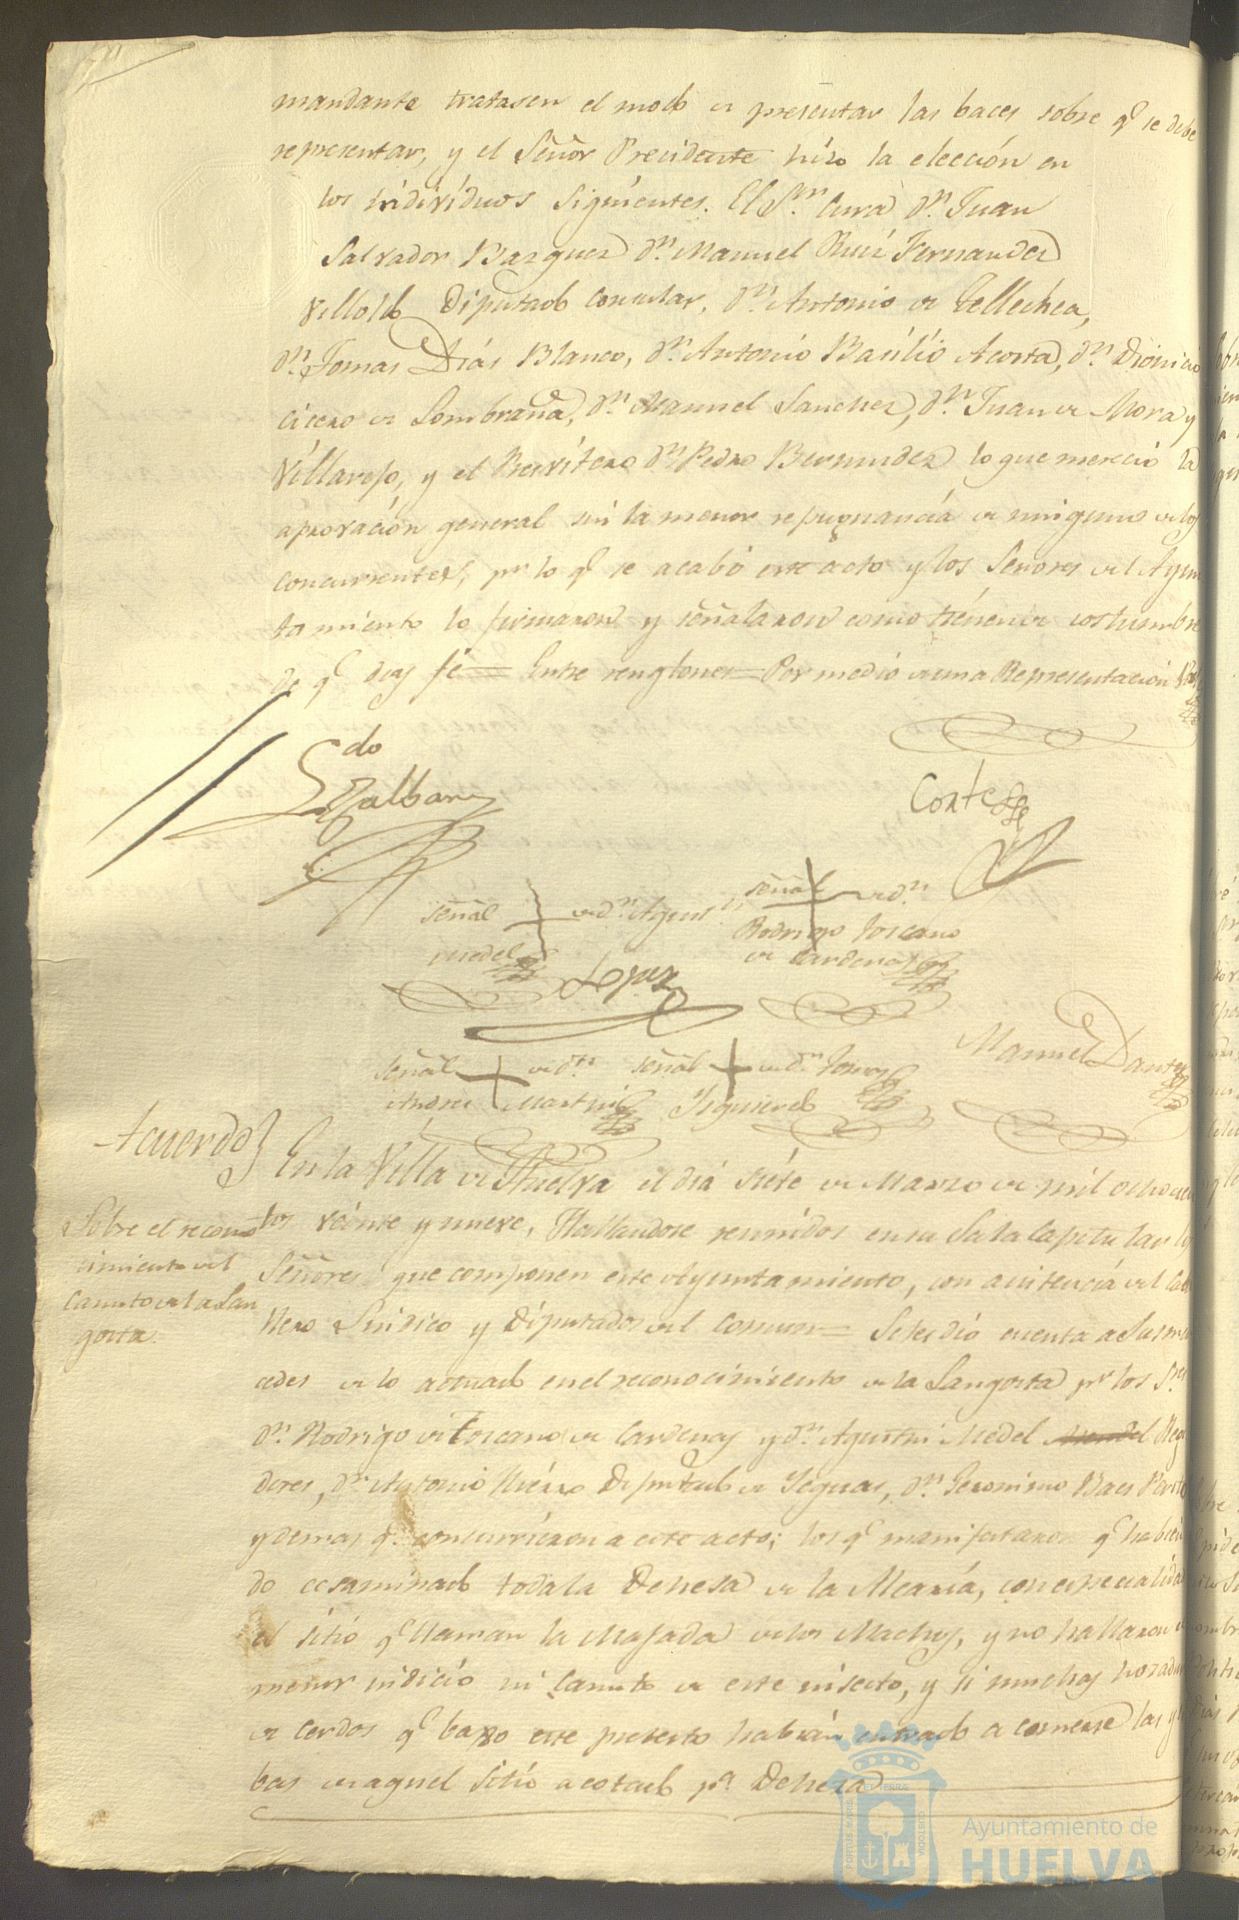 mandante tratasen el modo de presentar las baces sobre q.e se debe
representar, y el Señor Precidente hizo la elección en
los individuos siguientes. El S.or Cura d.n Juan
Salvador Bazquez d.n Manuel Ruiz Fernandez
Villoldo Diputado Consular, d.n Antonio de Tellechea,
d.n Tomas Dias Blanco, d.n Antonio Basilio Acosta, d.n Dionicio
Cicero de Lombraña, d.n Manuel Sanchez, d.n Juan de Mora y
Villarejo, y el Presvitero d.n Pedro Bermudez lo que mereció la
aprovación general sin la menor repugnancia de ninguno de los
concurrentes, p.r lo q.e se acabó este acto y los Señores del Ayun
tamiento lo firmaron y señalaron como tienen de costumbre
de q.e doy fé = Entre renglones = Por medio de una Representación
L.do
Cortes
señal de d.n Agust.n
Medel
señal de d.n
Rodrigo Toscano
de Cardenas
Lopez
señal de d.n
Andres Martin
señal de d.n
Ysquierdo
Manuel Dante
Acuerdo
En la Villa de Huelva el dia siete de Marzo de mil ochocien
tos veinte y nueve, Hallandose reunidos en su Sala Capitular los
Señores que componen este Ayuntamiento, con asistencia del Cava
llero Sindico y Diputados del Comun = Se les dió cuenta a Sus mer
cedes de lo actuado en el reconocimiento de la Langosta p.r los S.res
d.n Rodrigo de Toscano de Cardenas y d.n Agustin Medel Regi
dores, d.n Antonio Hierro Diputado de Yeguas, d.n Geronimo Baes Perito
y demas q.e concurrieron a este acto; los q.e manifestaron q.e habien
do ecsaminado toda la Dehesa de la Alcaria, con especialidad
el sitio q.e llaman la Majada de los Machos, y no hallaron el
menor indicio ni Canuto de este insecto, y si muchas hozaduras
de cerdos q.e baxo este pretexto habian entrado a comerse las yer
bas de aquel sitio acotado p.a Dehesa
Sobre el recono
cimiento del
Canuto de la Lan
gosta.
Ayuntamiento de
HUELVA